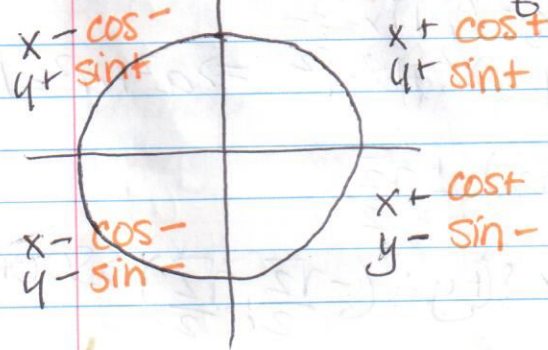 x - cos -
y+ sin+
x+ cos+
y+ sin+
x - cos -
y - sin -
x+ cos+
y - sin -